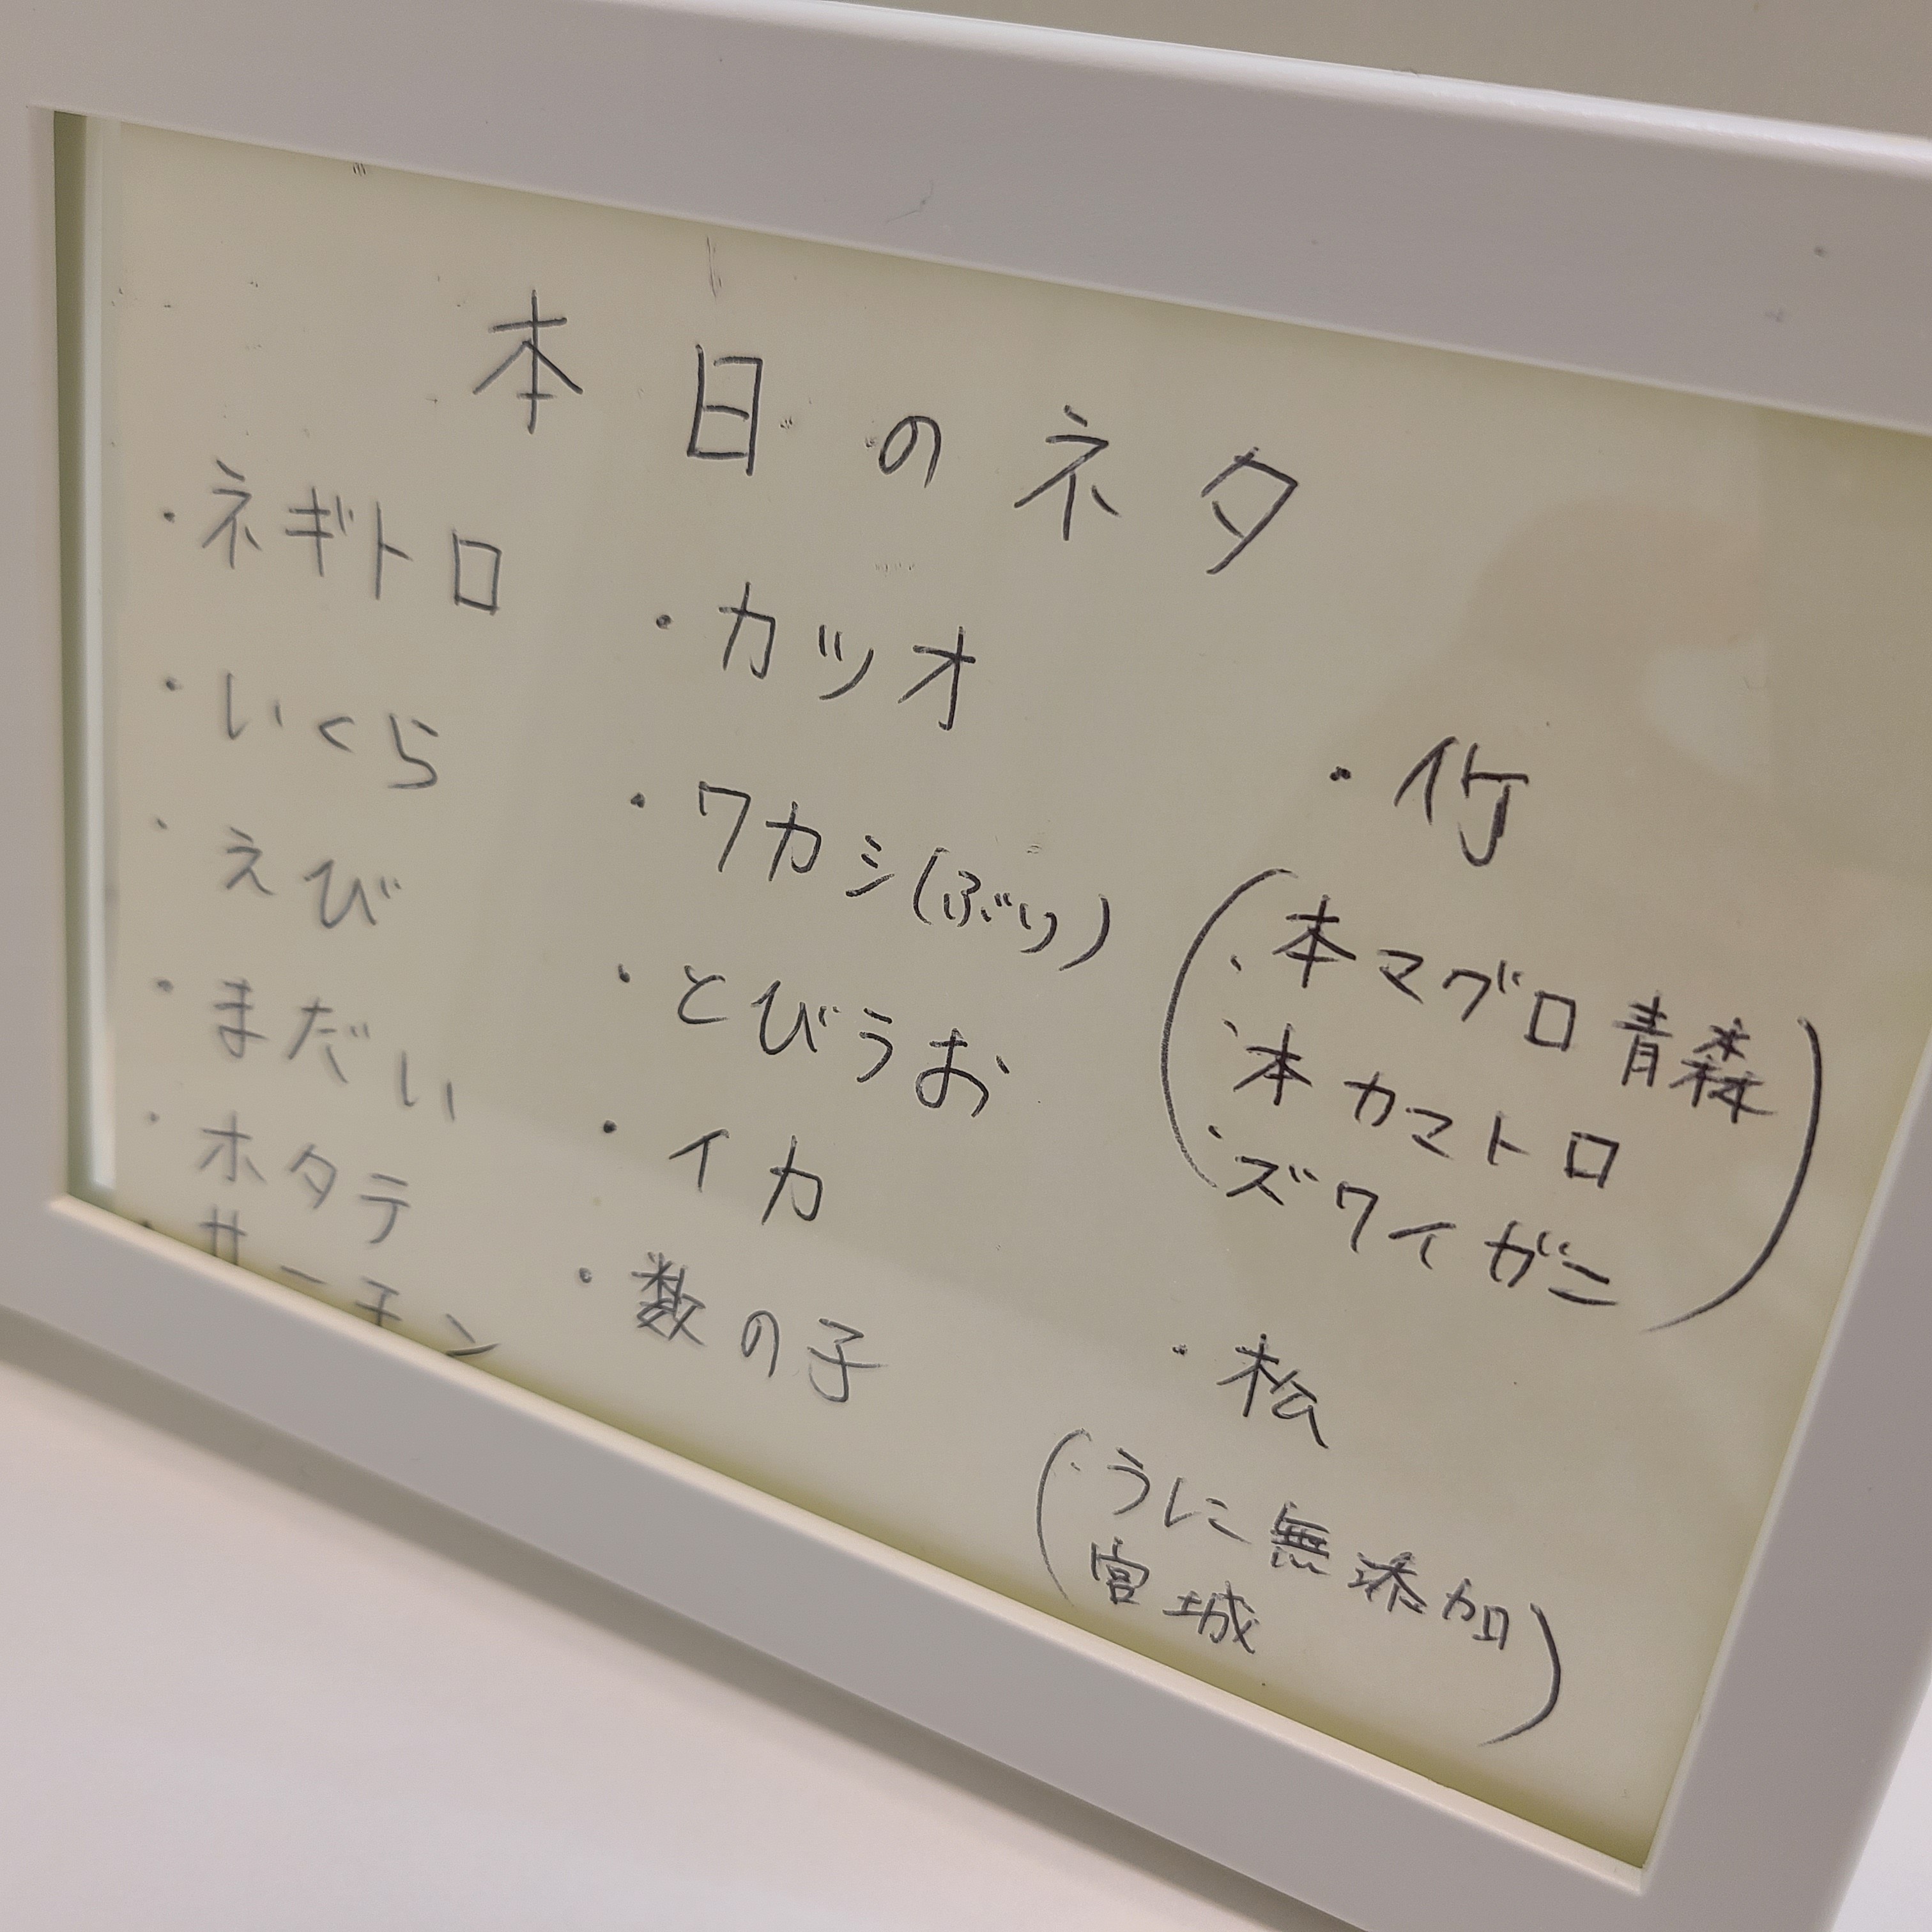 本日のネタ
・ネギトロ
・いくら
・えび
・まだい
・ホタテ
・サーモン
・カツオ
・ワカシ(ぶり)
・とびうお
・イカ
・数の子
・竹
(・本マグロ 青森
・本カマトロ
・ズワイガニ)
・松
(・うに無添加
宮城)